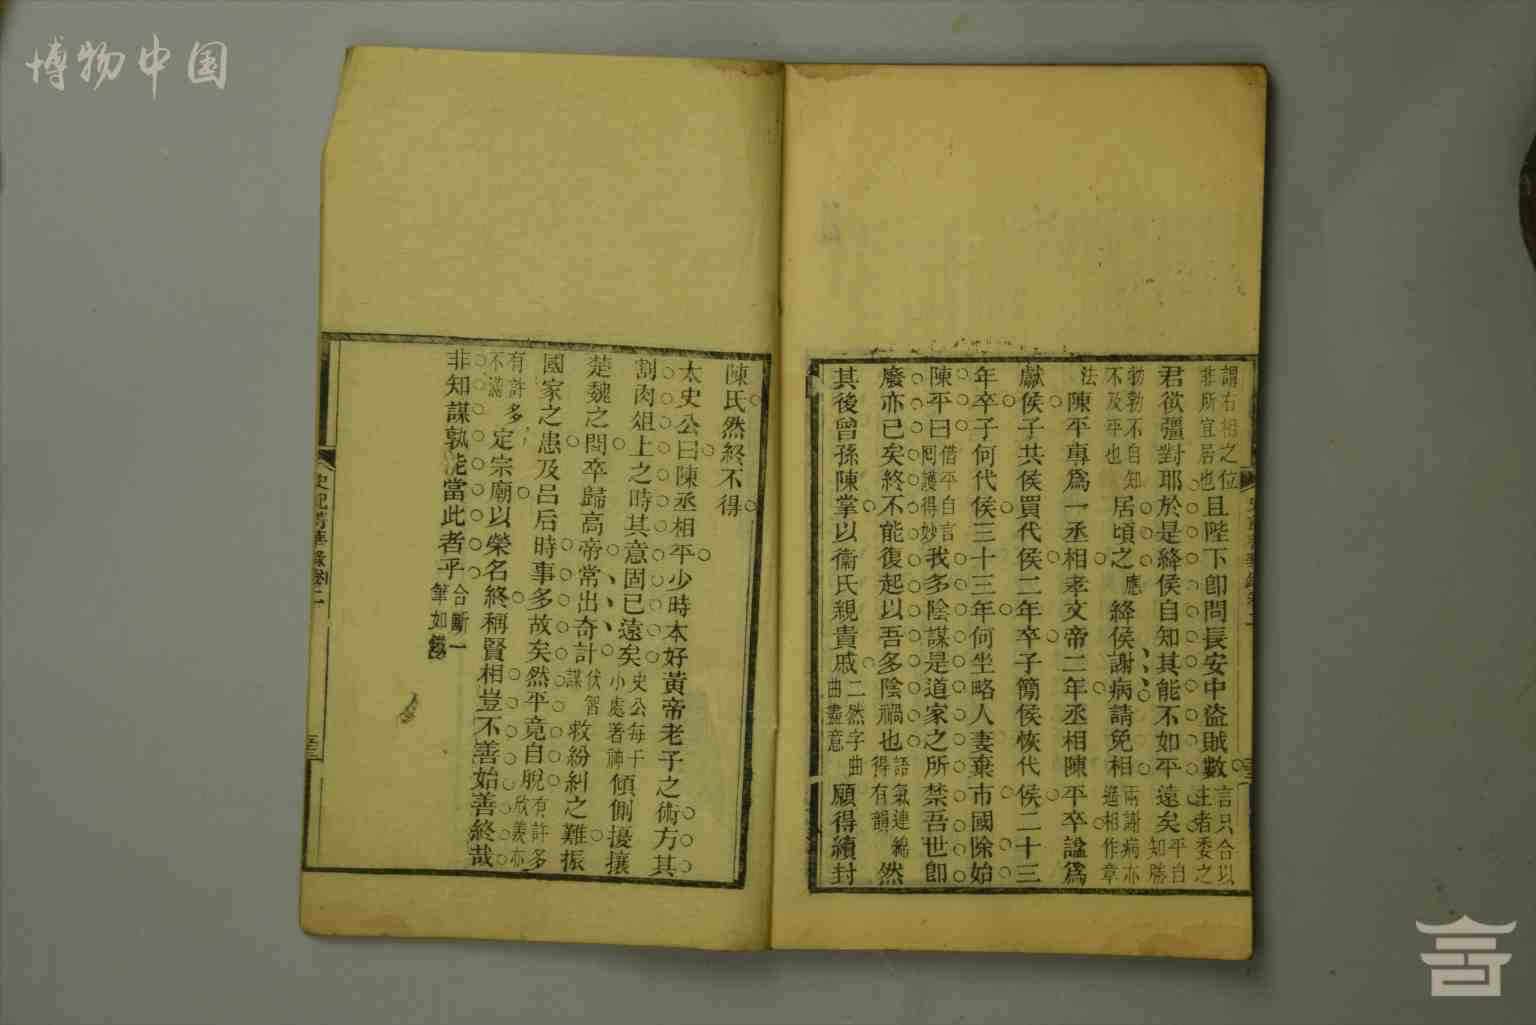 博物中国
謂右相之位非所宜居也且陛下卽問長安中盜賊數言只合以主者委之
君欲彊對耶於是絳侯自知其能不如平遠矣平自知勝
勃勃不自知不及平也居頃之應絳侯謝病請免相兩謝病亦遙相作章
法陳平專爲一丞相孝文帝二年丞相陳平卒諡爲
獻侯子共侯買代侯二年卒子簡侯恢代侯二十三
年卒子何代侯三十三年何坐略人妻棄市國除始
陳平曰借平自言回護得妙我多陰謀是道家之所禁吾世卽
廢亦已矣終不能復起以吾多陰禍也語氣連綿得有韻然
其後曾孫陳掌以衞氏親貴戚二然字曲曲盡意願得續封
陳氏然終不得
太史公曰陳丞相平少時本好黃帝老子之術方其
割肉俎上之時其意固已遠矣史公每于小處著神傾側擾攘
楚魏之間卒歸高帝常出奇計伏智謀救紛糾之難振
國家之患及呂后時事多故矣然平竟自脫有許多欣羨亦
有許多不滿定宗廟以榮名終稱賢相豈不善始善終哉
非知謀孰能當此者乎合斷一筆如鐵
史記菁華錄卷二